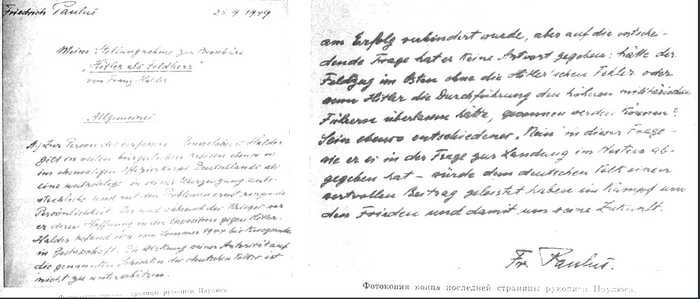 Friedrich Paulus 25.9.1949
Meine Stellungnahme zur Broschüre
„Hitler als Feldherr"
von Franz Halder
Allgemeines
A.) Zur Person des Verfassers Generaloberst Halder
gilt in weiten bürgerlichen Kreisen ebenso wie
im ehemaligen Offizierskorps Deutschlands als
eine untadelige in ihrer Überzeugung
und mit den Problemen
Persönlichkeit. Der war während des Krieges
deren Hoffnung in der Opposition gegen Hitler.
Halder befand sich vom Sommer 1944 bis Kriegsende
in Gestapohaft. Die Wirkung seiner Autorität auf
die genannten Schichten des deutschen Volkes ist
nicht zu unterschätzen.
am Erfolg verhindert wurde, aber auf die entschei-
dende Frage hat er keine Antwort gegeben: hätte der
Feldzug im Osten ohne die Hitler'schen Fehler oder
wenn Hitler die Durchführung den höheren militärischen
Führern überlassen hätte, gewonnen werden können?
Sein ebenso entschiedenes „Nein" in dieser Frage –
wie er es in der Frage zur Landung im Westen ab-
gegeben hat – würde dem deutschen Volk einen
wertvollen Beitrag geleistet haben im Kampf um
den Frieden und damit um seine Zukunft.
Fr. Paulus.
Фотокопия конца последней страницы рукописи Паулюса.